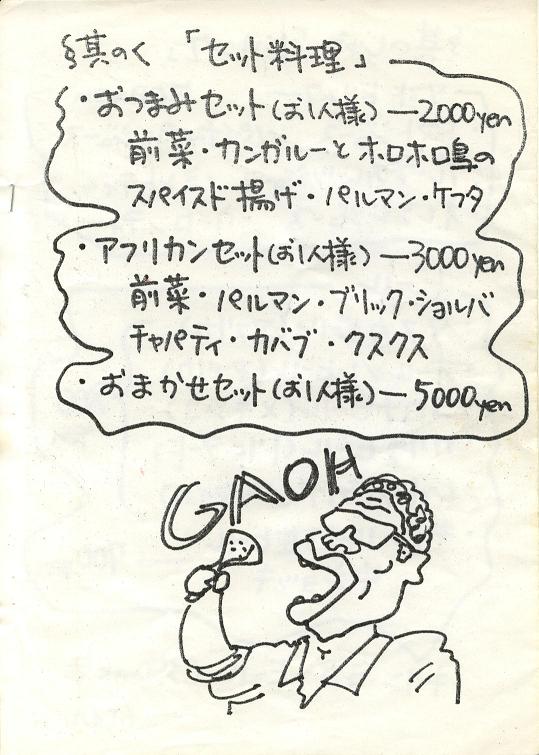 §其のく「セット料理」
・おつまみセット(お1人様)―2000yen
前菜・カンガルーとホロホロ鳥の
スパイスド揚げ・パルマン・ケフタ
・アフリカンセット(お1人様)―3000yen
前菜・パルマン・ブリック・ショルバ
チャパティ・カバブ・クスクス
・おまかせセット(お1人様)―5000yen
GAOH